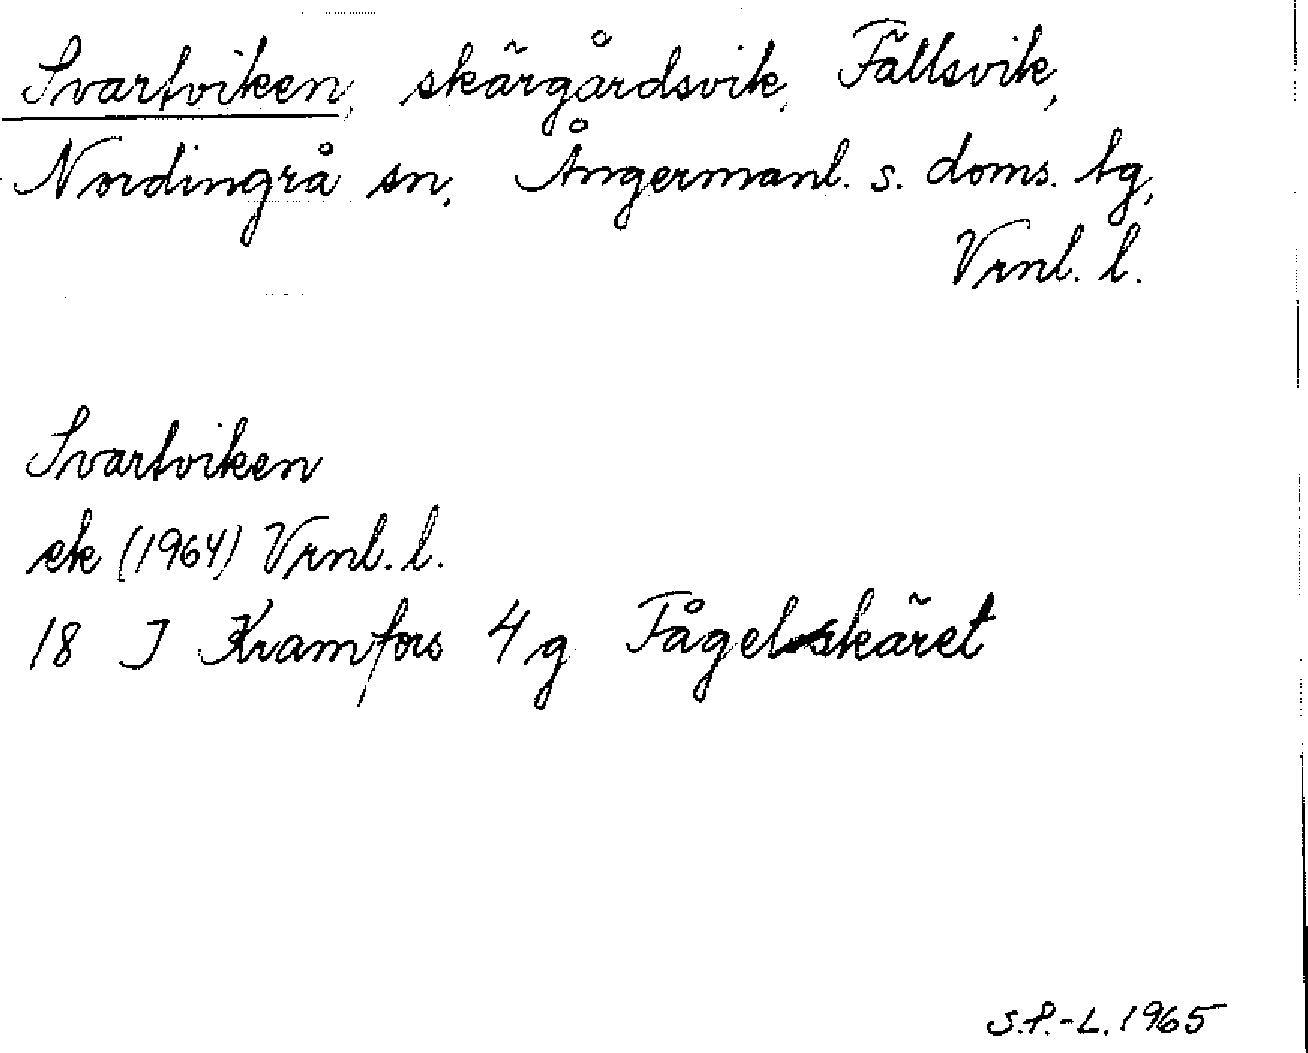 Svartviken, skärgårdsvik, Fällsvik,
Nordingrå sn, Ångermanl. s. doms. tg,
Vrnl. l.
Svartviken
ek (1964) Vrnl. l.
18 J Kramfors 4 g Fågelskäret
S.P.-L. 1965